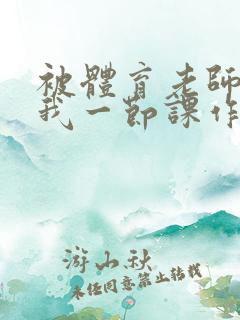 被體育老師
我一節課作
游山秋
未经同意禁止转载